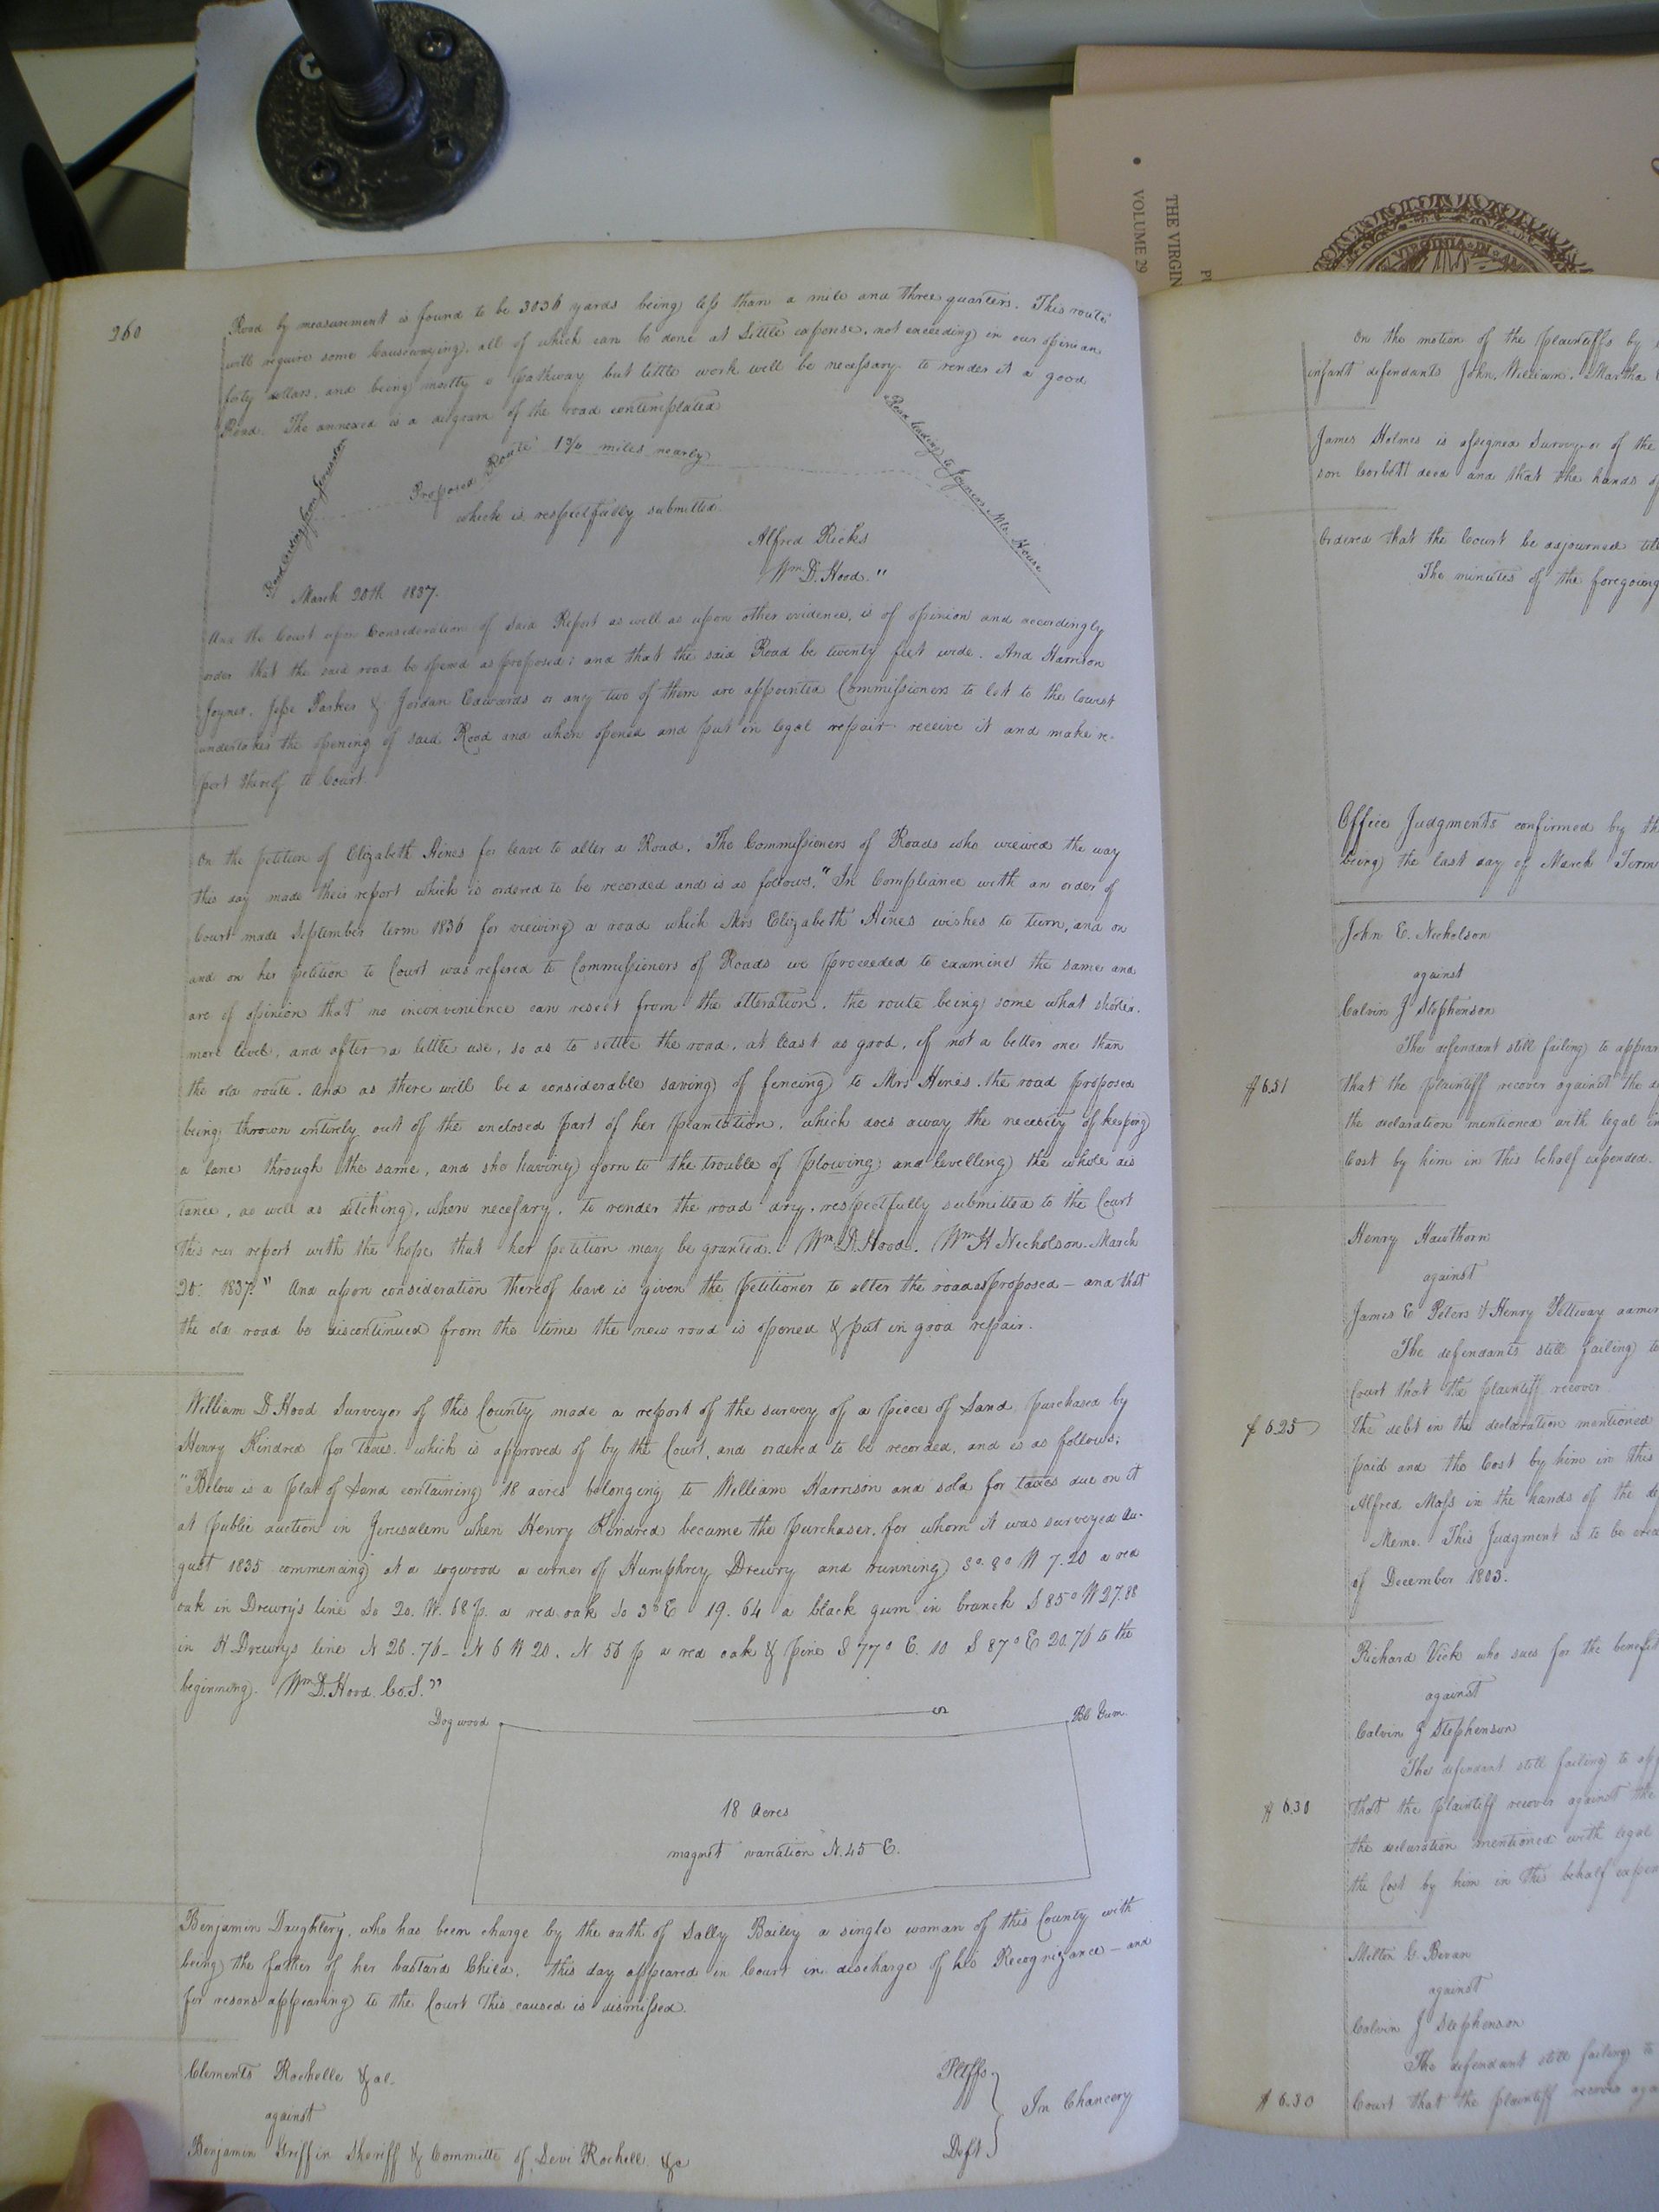 THE VIRGIN
VOLUME 29
VIRGINIA IN
260
Road by measurement is found to be 3036 yards being less than a mile and three quarters. This route
will require some Causewaying, all of which can be done at little expense, not exceeding in our opinion
forty dollars, and being mostly a pathway but little work will be necessary to render it a good
Road. The annexed is a diagram of the road contemplated
Road leading from Jerusalem
Proposed Route 1 3/4 miles nearly
Road leading to Joyners Mtg. House
which is respectfully submitted.
Alfred Ricks
Wm D. Hood."
March 20th 1837.
And the Court upon Consideration of said Report as well as upon other evidence, is of opinion and accordingly
order that the said road be opened as proposed; and that the said Road be twenty feet wide. And Harrison
Joyner, Jesse Parker & Jordan Edwards or any two of them are appointed Commissioners to let to the lowest
undertaker the opening of said Road and when opened and put in legal repair receive it and make re-
port thereof to Court.
On the petition of Elizabeth Hines for leave to alter a Road. The Commissioners of Roads who viewed the way
this day made their report which is ordered to be recorded and is as follows, "In Compliance with an order of
Court made September term 1836 for viewing a road which Mrs Elizabeth Hines wishes to turn, and on
and on her petition to Court was refered to Commissioners of Roads we proceeded to examine the same and
are of opinion that no inconvenience can result from the alteration, the route being some what shorter,
more level, and after a little use, so as to settle the road, at least as good, if not a better one than
the old route. And as there will be a considerable saving of fencing to Mrs Hines, the road proposed
being thrown entirely out of the enclosed part of her plantation, which does away the necesity of keeping
a lane through the same, and she having gorn to the trouble of plowing and levelling the whole dis
tance, as well as ditching, when necesary, to render the road dry, respectfully submitted to the Court
this our report with the hope that her petition may be granted. Wm D. Hood. Wm H Nicholson. March
20: 1837." And upon consideration thereof leave is given the Petitioner to alter the road as proposed — and that
the old road be discontinued from the time the new road is opened & put in good repair.
William D Hood Surveyor of this County made a report of the survey of a piece of Land purchased by
Henry Kindred for taxes, which is approved of by the Court, and ordered to be recorded, and is as follows;
"Below is a plat of Land containing 18 acres belonging to William Harrison and sold for taxes due on it
at public auction in Jerusalem when Henry Kindred became the purchaser, for whom it was surveyed Au-
gust 1835 commencing at a dogwood a corner of Humphrey Drewry and running So. 8° W 7.20 a red
oak in Drewry's line So 20. W. 68 p. a red oak So 3° E 19.64 a black gum in branch S 85° W 27.88
in H Drewrys line N 26.76 - N 6 W 20. N 56 p a red oak & pine S 77° E. 10 S 87° E 20.76 to the
beginning. Wm D. Hood Co. S."
Dogwood
S
Bl. Gum.
18 Acres
magnet variation N. 45 E.
Benjamin Daughtery, who has been charge by the oath of Sally Bailey a single woman of this County with
being the father of her bastard Child, this day appeared in Court in discharge of his Recognizance — and
for resons appearing to the Court this caused is dismissed.
Clements Rochelle & al.
Pltffs
against
In Chancery
Benjamin Griffin Sheriff & Committe of Levi Rochell &c
Deft
On the motion of the plaintiffs by
infant defendants John, William, Martha
James Holmes is assigned Surveyor of the
son Corbett decd and that the hands of
Ordered that the Court be adjourned till
The minutes of the foregoing
Office Judgments confirmed by th
being the last day of March Term
John E. Nicholson
against
Calvin J Stephenson
The defendant still failing to appear
$ 6.51
that the plaintiff recover against the de
the declaration mentioned with legal in
Cost by him in this behalf expended.
Henry Hawthorn
against
James E Peters & Henry Holliway admin
The defendants still failing to
Court that the plaintiff recover
$ 6.25
the debt in the declaration mentioned
paid and the Cost by him in this
Alfred Moss in the hands of the de
Memo. This Judgment is to be cred
of December 1803.
Richard Vick who sues for the benefit
against
Calvin J Stephenson
The defendant still failing to app
$ 6.30
that the plaintiff recover against the
the declaration mentioned with legal
the Cost by him in this behalf expen
Milton G. Bevan
against
Calvin J Stephenson
The defendant still failing to
$ 6.30
Court that the plaintiff recover aga